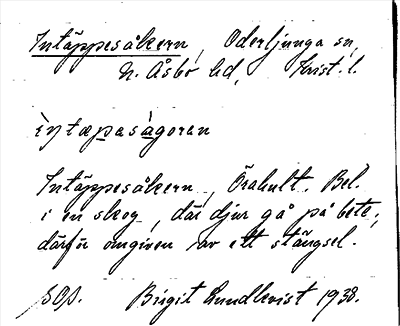 Intäppesåkern, Oderljunga sn,
N. Åsbo hd, Krist. l.
ìntæpasàgoran
Intäppesåkern, Örahult. Bel.
i en skog, där djur gå på bete,
därför omgiven av ett stängsel.
SOA. Birgit Lundkvist 1938.